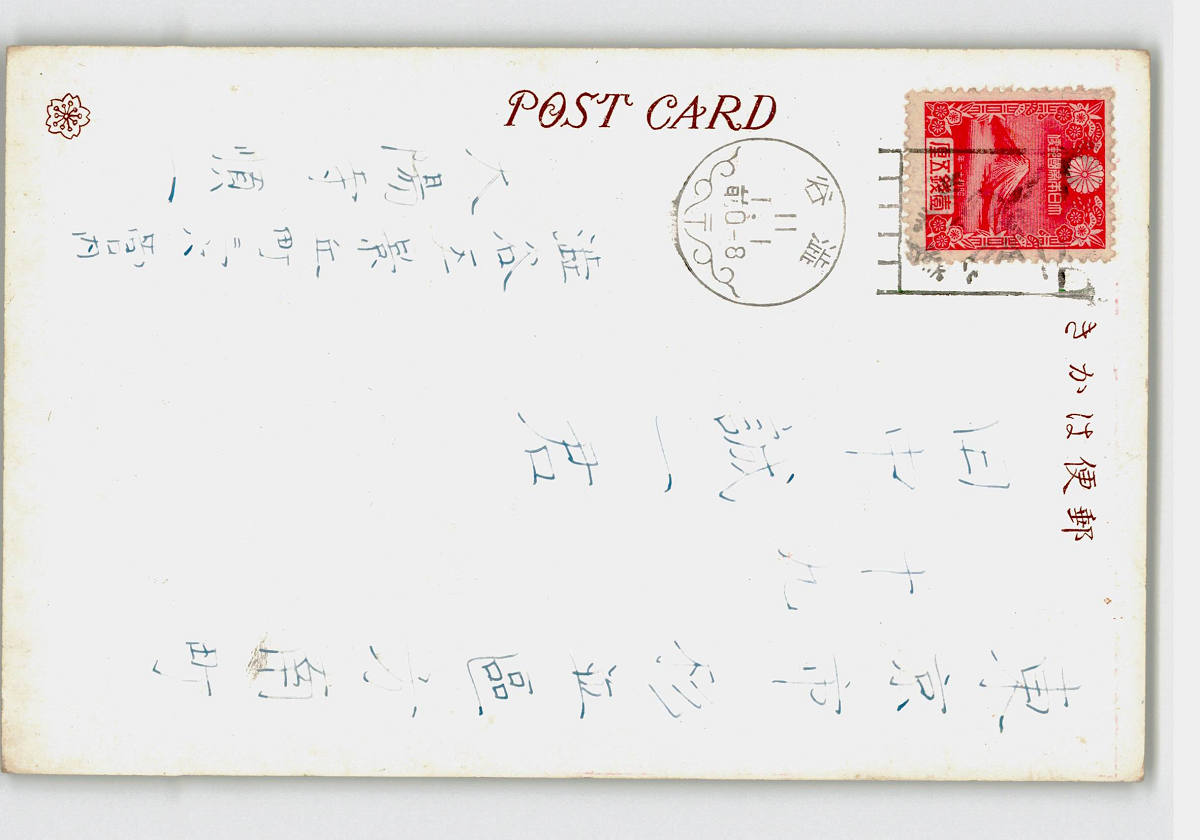 POST CARD
郵便はかき
大日本帝國郵便
壹錢五厘
澁谷
11.1.1
前0-8
東京市杉並區方南町
十九
中誠一君
澁谷区景丘町二六
順一